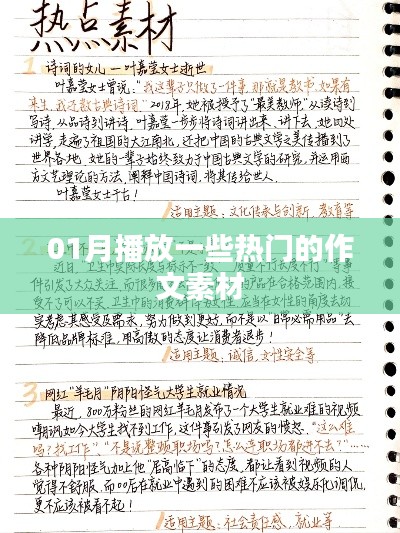 热点素材
1 诗词的女儿——叶嘉莹女士逝世
叶嘉莹女士曾说，"我这辈子只做了一件事，那就是教书，如果有
来生，我还教古典诗词。"2018年，她被授予了"最美教师"从读诗到
写诗，从品诗到讲诗，叶嘉莹一步步将诗词讲出来、讲下去，她四处
讲学，走遍了祖国的大江南北，还把中国的古典文学之美传播到了
世界各地，她的一辈子始终致力于中国古典文学的研究，并运用西
方文艺理论的方法，阐释中国诗词，将其传给世人。
叶嘉莹女士千古！
适用主题：文化传承与创新、教育等
01月播放一些热门的作
文素材
近日，卫生巾
件引发了大众关注，而
产品在合格范围内，接
受不了可以不买，卫生巾
应当在女性的角度去切
实考虑其感受及需求，努力做到更好，而不是以"日常必需用品"去
降低品牌标准，用高傲的态度让消费者退步！
适用主题：诚信，女性安全等
3 网红"羊毛月"阴阳怪气大学生就业情况
最近，800万粉丝的网红羊毛月发布了一个大学生就业难的视频
嘲讽如今大学生找不到工作，这件事引发了网友的愤怒，"这么难
吗？找工作""不是说整顿职场吗？怎么连职场都进不去？"……
各种阴阳怪气加上他"居高临下"的态度，都让看到视频的人
觉得不舒服，而00后在就业中遇到的困难不应该被娱乐化调侃，
更不应该被看不起！
适用主题：社会责任感，就业等